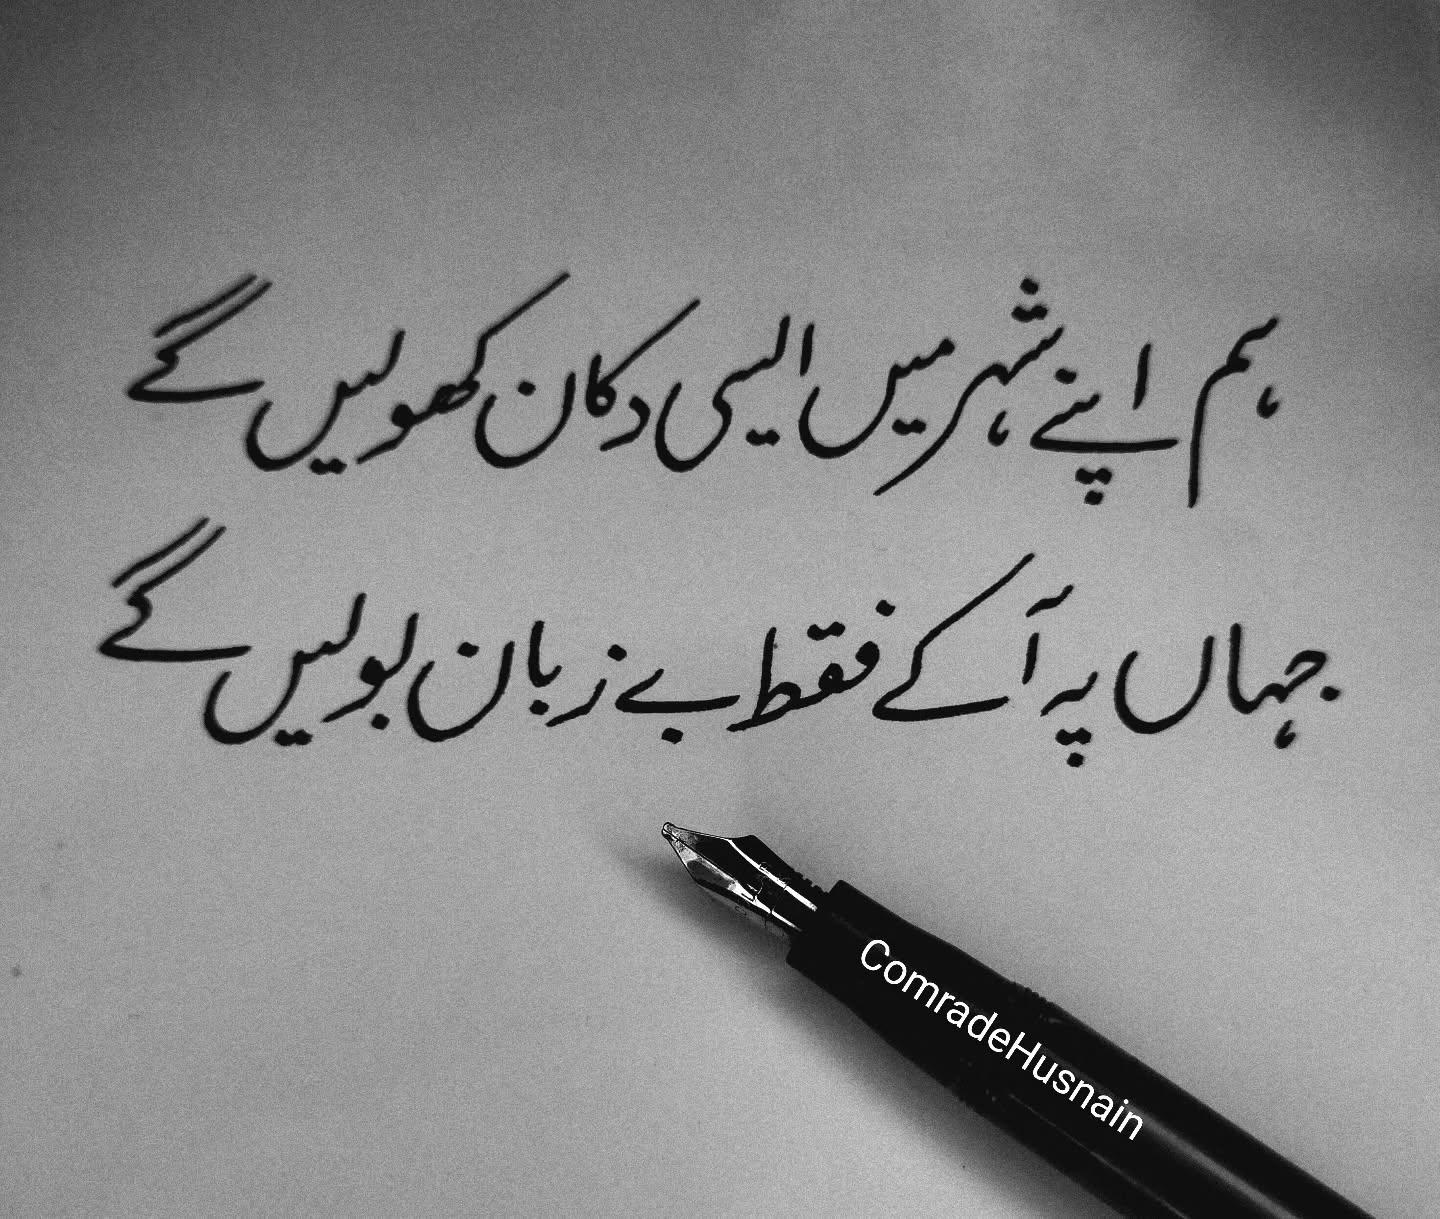 ہم اپنے شہر میں ایسی دکان کھولیں گے
جہاں پہ آ کے فقط بے زبان بولیں گے
ComradeHusnain